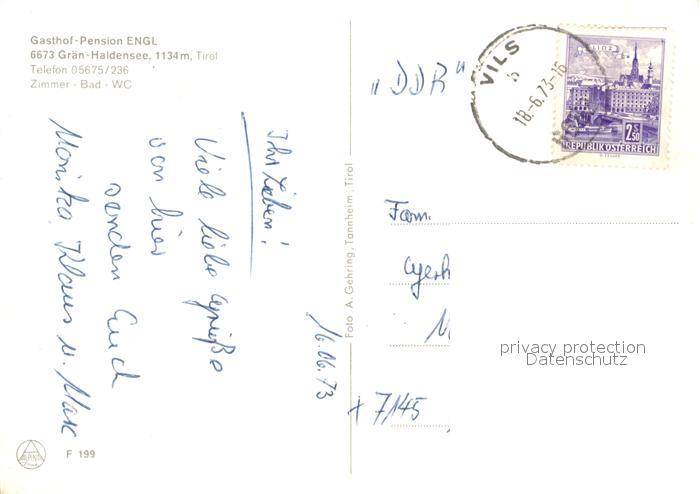 Gasthof-Pension ENGL
6673 Grän-Haldensee, 1134 m, Tirol
Telefon 05675/236
Zimmer - Bad - WC
Ihr Lieben!
Viele liebe Grüße
von hier
senden Euch
Monika, Klaus u. Max
16.06.73
ALPINA
F 199
Foto A. Gehring, Tannheim, Tirol
"DDR"
VILS
b
18.-6.73-16
LINZ
2.50
REPUBLIK ÖSTERREICH
Fam.
Gerh
M
x 7145
privacy protection
Datenschutz